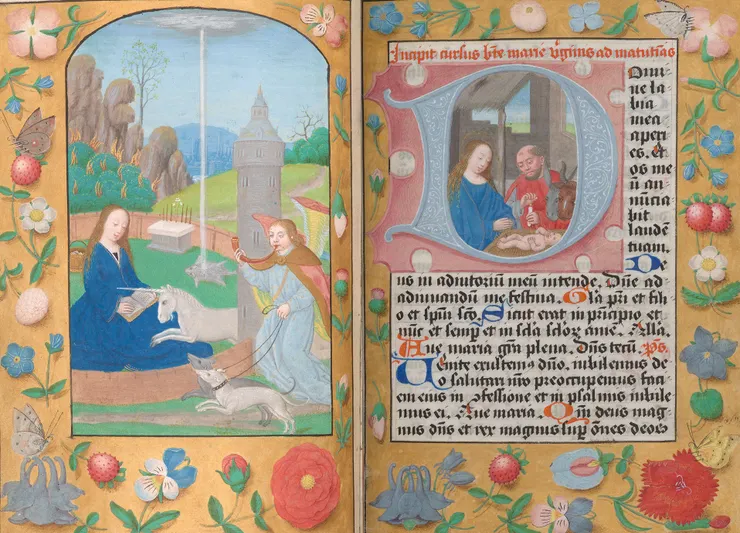 Incipit cursus bte marie virginis ad matutinas
Domi
ne la
bia
mea
aperi
es. Et
os me
u an
nuncia
bit
laude
tuam.
De
us in adiutorium meu intende. Dne ad
adiuuandu me festina. Gla pri et fili
o et spui sco. Sicut erat in principio et
nuc et semp et in scla sclor ame. Alla.
Aue maria gra plena. Dns tecu. ps.
Uenite exultemus dno. iubilemus de
o salutari nro preoccupemus faci
em eius in ofessione et in psalmis iubile
mus ei. Aue maria. Qm deus mag
nus dns et rex magnus sup omes deos